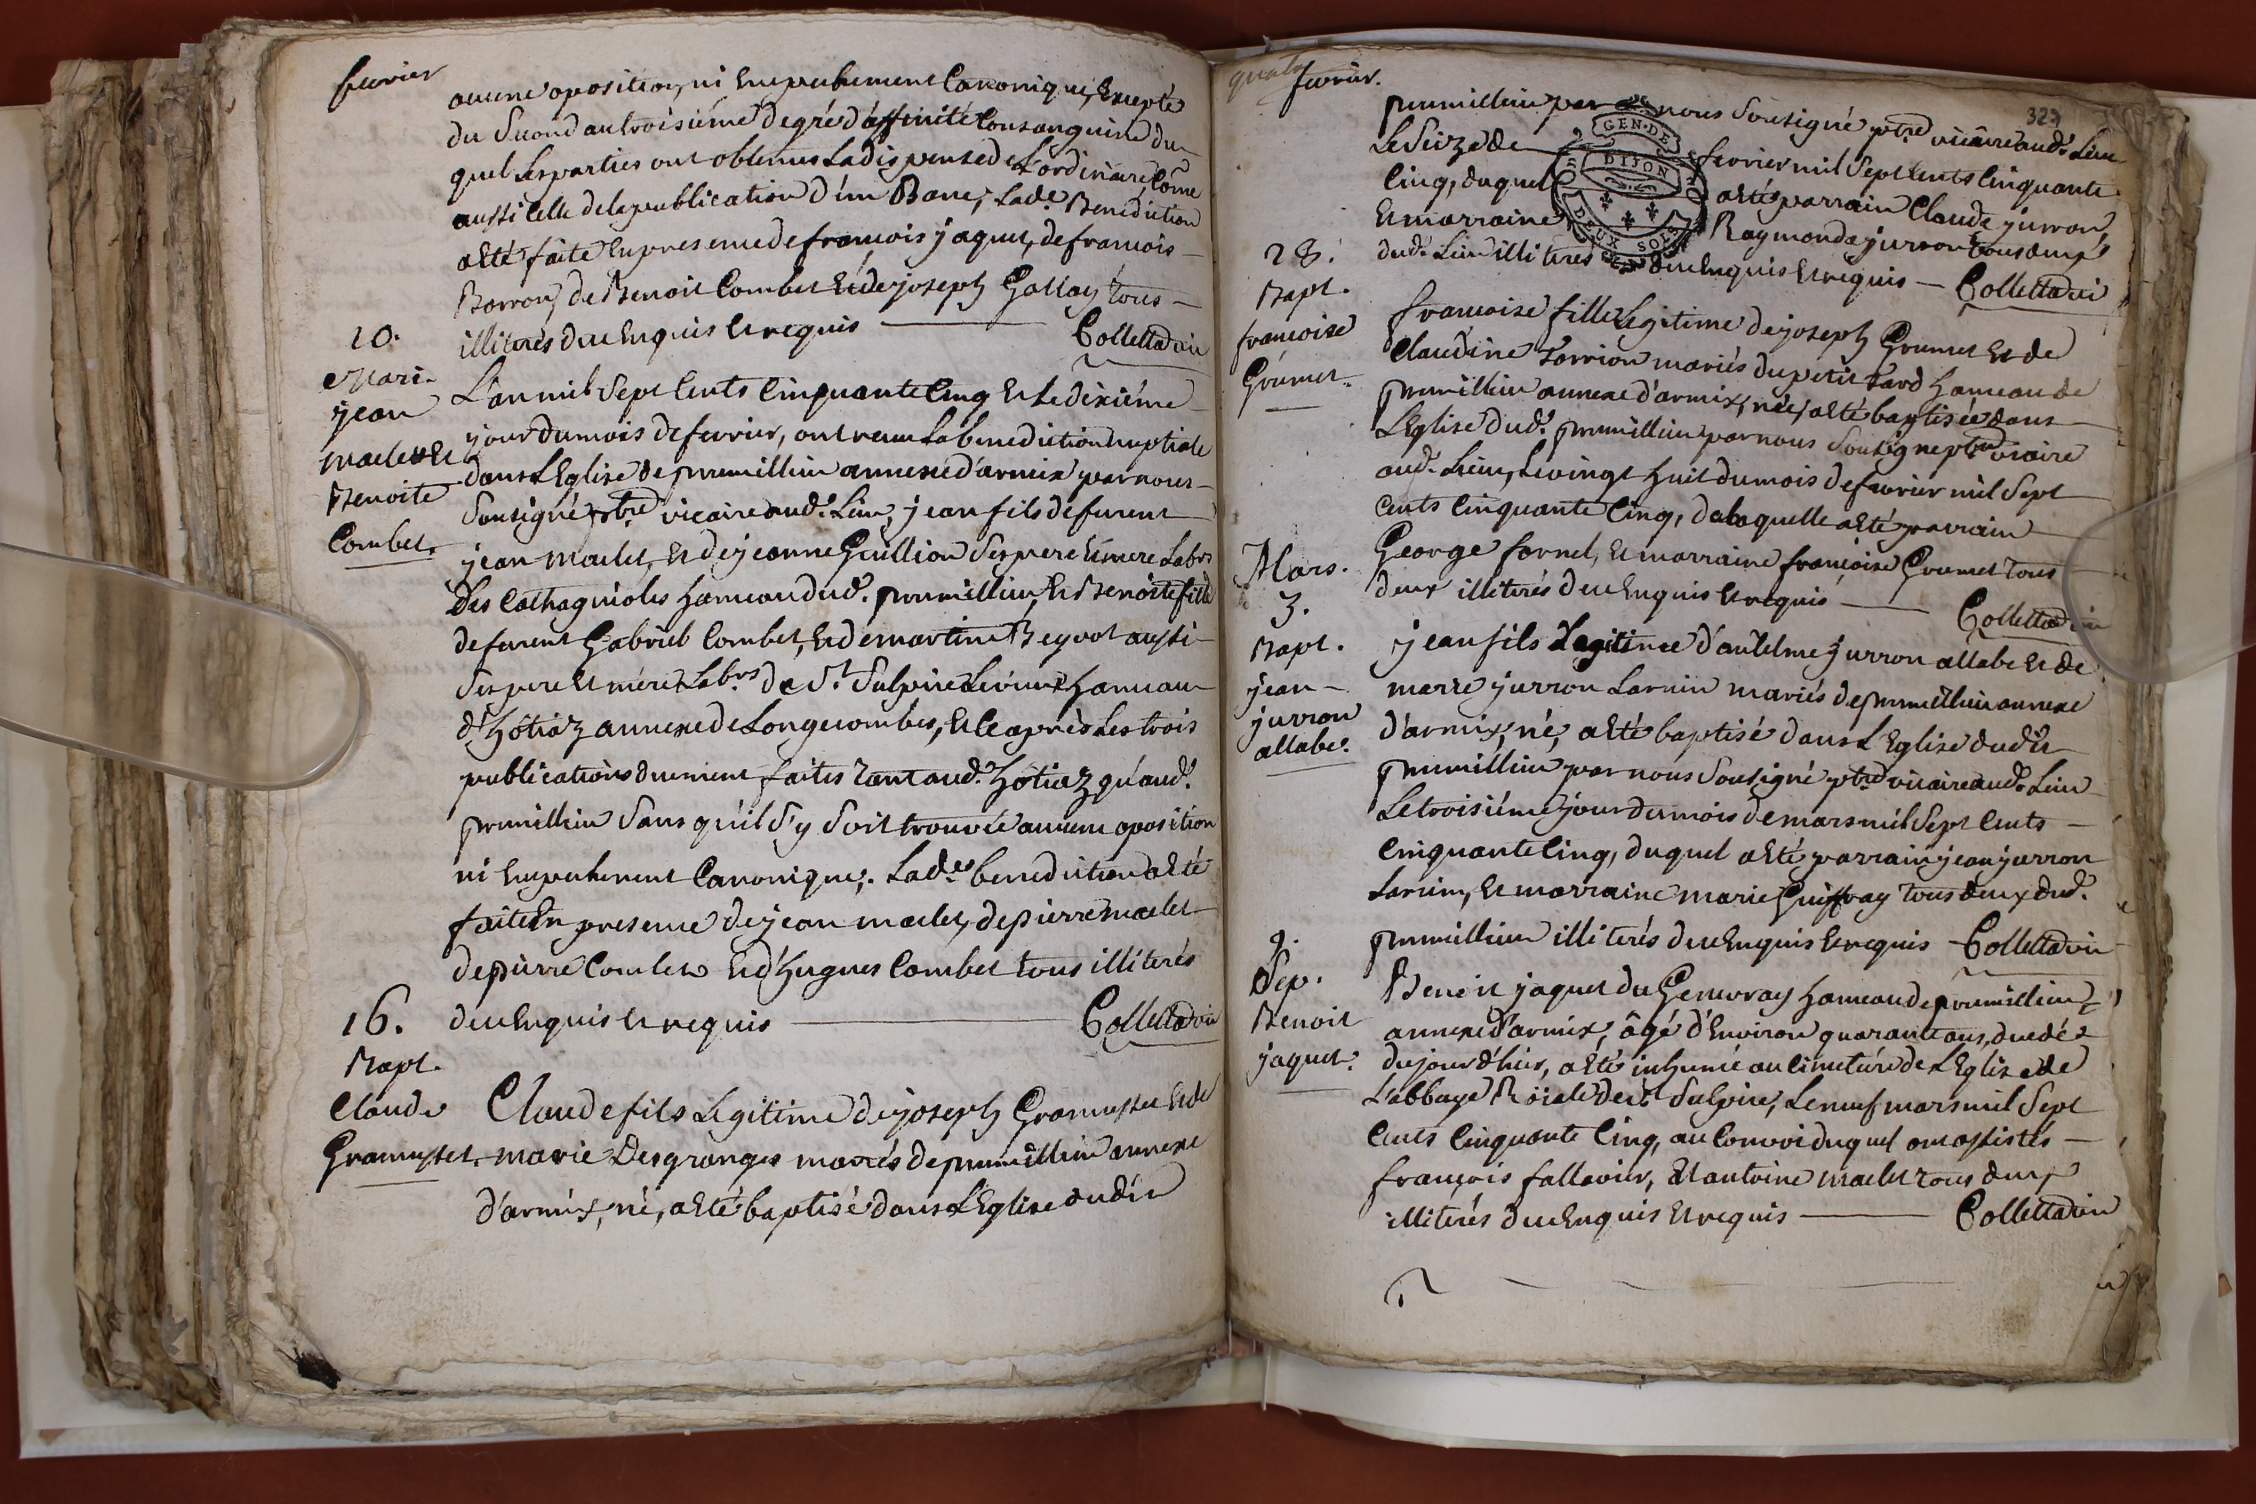 fevrier
aucune oposition, ni Empechement Canonique, Excepté
du Second au troisiéme degré d'affinité Consanguine du
quel Les parties ont obtenus La dispense de L'ordinaire, Côme
aussi Celle de la publication d'un Banc; Lade. Benediction
a Eté faite En presence de francois jaquet, de francois
Borron, de Benoit Combet Et de joseph Gallay tous
illiterés du Enquis Et requis — Collettavi
10.
Mari.
jean
maclet Et
Benoite
Combet.
L'an mil Sept Cents Cinquante Cinq Et Le dixiéme
jour du mois de fevrier, ont recu La benediction nuptiale
dans L'Eglise de prumillieu annexe d'armix par nous
Sousigné ptre vicaire aud. Lieu, jean fils de furent
jean maclet, Et de jeanne Guillion Ses pere Et mere Labrs
des Cathagnioles hameau dud. prumillieu, Et Benoite fille
de furent Gabriel Combet, Et de martine Beyvot aussi
Ses pere Et mere Labrs de St. Sulpice Le vieux hameau
d'hôtiaz annexe de Longecombes, Et Ce après Les trois
publications duement faites Tant aud. hôtiaz qu'aud.
prumillieu Sans qu'il S'y Soit trouvée aucune oposition
ni Empechement Canonique; Lade. benediction a Eté
faite En presence de jean maclet, de pierre maclet
de pierre Combet Et d'hugues Combet tous illiterés
du Enquis Et requis — Collettavi
16.
Bapt.
Claude
Gramusset.
Claude fils Legitime de joseph Gramusset Et de
marie Desgranges mariés de prumillieu annexe
d'armix, né, a Eté baptisé dans L'Eglise dudit
quatr
fevrier.
323
prumillieu par nous Sousigné ptre vicaire aud. Lieu
Le Seize de fevrier mil Sept Cents Cinquante
Cinq, duquel a Eté parrain Claude jurron
Et marraine Raymonde jurron tous deux
dud. Lieu illiterés du Enquis Et requis — Collettavi
GEN. DE
DIJON
DEUX SOLS
28.
Bapt.
francoise
Grumet.
francoise fille Legitime de joseph Grumet Et de
Claudine Torrion mariés du petit Tard hameau de
prumillieu annexe d'armix, née, a Eté baptisée dans
L'Eglise dud. prumillieu par nous Sousigné ptre vicaire
aud. Lieu, Le vingt huit du mois de fevrier mil Sept
cents Cinquante Cinq, de laquelle a Eté parrain
George fornel, Et marraine françoise Grumet tous
deux illiterés du Enquis Et requis — Collettavi
Mars.
3.
Bapt.
jean
jurron
allabe.
jean fils Legitime d'antelme jurron allabe Et de
marie jurron Laruin mariés de prumillieu annexe
d'armix, né, a Eté baptisé dans L'Eglise dudit
prumillieu par nous Sousigné ptre vicaire aud. Lieu
Le troisiéme jour du mois de mars mil Sept Cents
Cinquante Cinq, duquel a Eté parrain jean jurron
Laruin, Et marraine marie Guiffray tous deux dud.
prumillieu illiterés du Enquis Et requis — Collettavi
9.
Sep.
Benoit
jaquet.
Benoit jaquet du Genevray hameau de prumillieu
annexe d'armix, âgé d'Environ quarante ans, decédé
du jour d'hier, a Eté inhumé au Cimetiére de L'Eglise de
L'abbaye Roiale de St. Sulpice, Le neuf mars mil Sept
Cents Cinquante Cinq, au Convoi duquel ont assistés
françois fallavier, Et antoine maclet tous deux
illiterés du Enquis Et requis — Collettavi